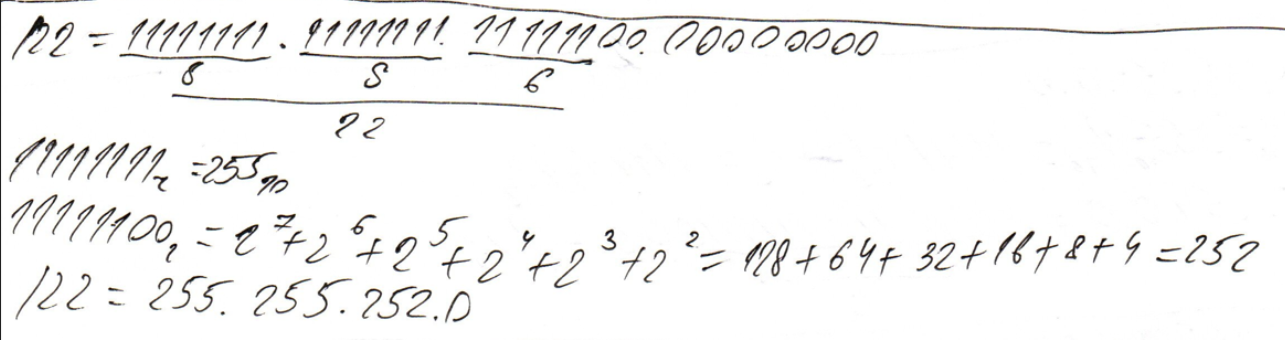 /22 = 11111111.11111111.11111100.00000000
8 8 6
22
11111111₂ = 255₁₀
11111100₂ = 2⁷+2⁶+2⁵+2⁴+2³+2² = 128+64+32+16+8+4 = 252
/22 = 255.255.252.0